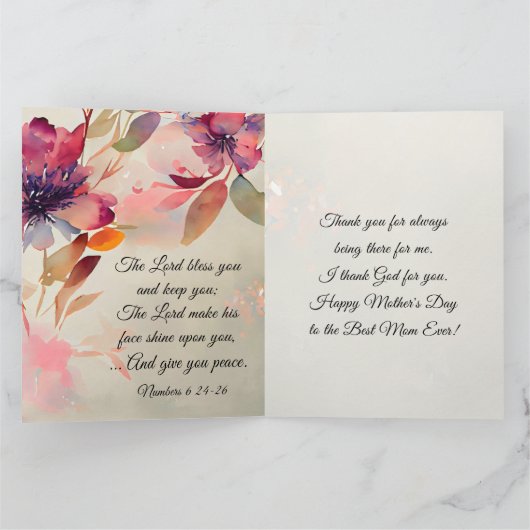 The Lord bless you
and keep you;
The Lord make his
face shine upon you,
... And give you peace.
Numbers 6 24-26
Thank you for always
being there for me.
I thank God for you.
Happy Mother's Day
to the Best Mom Ever!